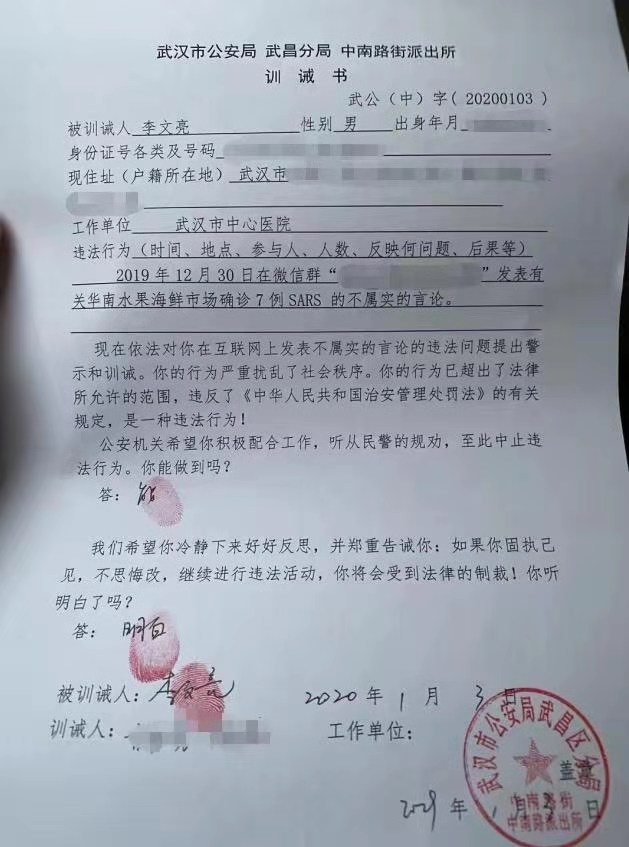 武汉市公安局 武昌分局 中南路街派出所
训 诫 书
武公（中）字（20200103）
被训诫人 李文亮 性别 男 出身年月
身份证号各类及号码
现住址（户籍所在地） 武汉市
工作单位 武汉市中心医院
违法行为（时间、地点、参与人、人数、反映何问题、后果等）
2019年12月30日在微信群“ ”发表有
关华南水果海鲜市场确诊7例SARS的不属实的言论。
现在依法对你在互联网上发表不属实的言论的违法问题提出警
示和训诫。你的行为严重扰乱了社会秩序。你的行为已超出了法律
所允许的范围，违反了《中华人民共和国治安管理处罚法》的有关
规定，是一种违法行为！
公安机关希望你积极配合工作，听从民警的规劝，至此中止违
法行为。你能做到吗？
答： 能
我们希望你冷静下来好好反思，并郑重告诫你：如果你固执己
见，不思悔改，继续进行违法活动，你将会受到法律的制裁！你听
明白了吗？
答： 明白
被训诫人：李文亮 2020年1月3日
训诫人： 工作单位：
武汉市公安局武昌区分局
盖章
中南路街
中南路派出所
年1月3日